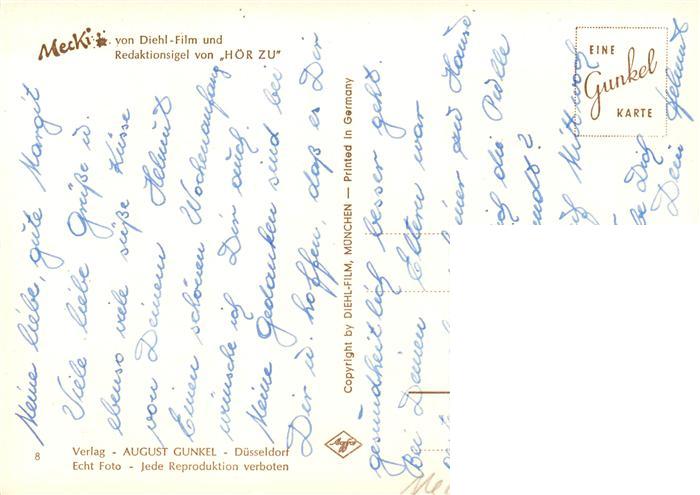 Mecki von Diehl-Film und
Redaktionsigel von „HÖR ZU"
EINE
Gunkel
KARTE
Meine liebe, gute Margit
Viele liebe Grüße u.
ebenso viele süße Küsse
von Deinem Helmut
Einen schönen Wochenanfang
wünsche ich Dir auch.
Meine Gedanken sind bei
Dir u. hoffen, daß es Dir
gesundheitlich besser geht.
Bei Deinen Eltern war
zu Hause.
ich die Pulle
Mittwoch
Dich
Dein Helmut
Copyright by DIEHL-FILM, MÜNCHEN — Printed in Germany
Agfa
8
Verlag - AUGUST GUNKEL - Düsseldorf
Echt Foto - Jede Reproduktion verboten